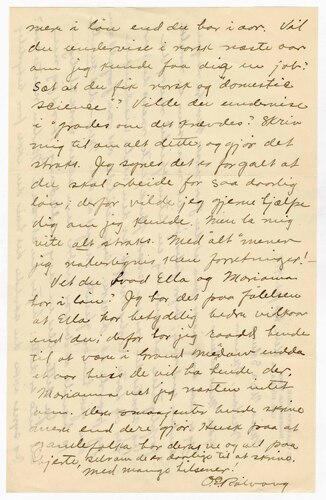 mere i løn end du har i aar. Vil
du undervise i norsk næste aar
om jeg kunde faa dig en job?
Sæt at du fik norsk og "domestic
science"? Vilde du undervise
i "grades om det krævdes? Skriv
mig til om alt dette, og gjør det
straks. Jeg synes det er for galt at
du skal arbeide for saa daarlig
løn; derfor vilde jeg gjerne hjælpe
dig om jeg kunde. Men la mig
vite alt straks. Med "alt" mener
jeg naturligvis kun forretninger! —
Vet du hvad Ella og Marianna
har i løn? Jeg har det paa følelsen
at Ella har betydelig bedre vilkaar
end du; derfor har jeg raadet hende
til at være i Grand Meadow endda
et aar hvis de vil ha hende der.
Marianna vet jeg næsten intet
om. Dere
mere end dere gjør. Husk paa at
gamlefolka har deres ve og vel paa
hjerte, selv om de er daarlige til at skrive.
Med mange hilsener!
OERølvaag